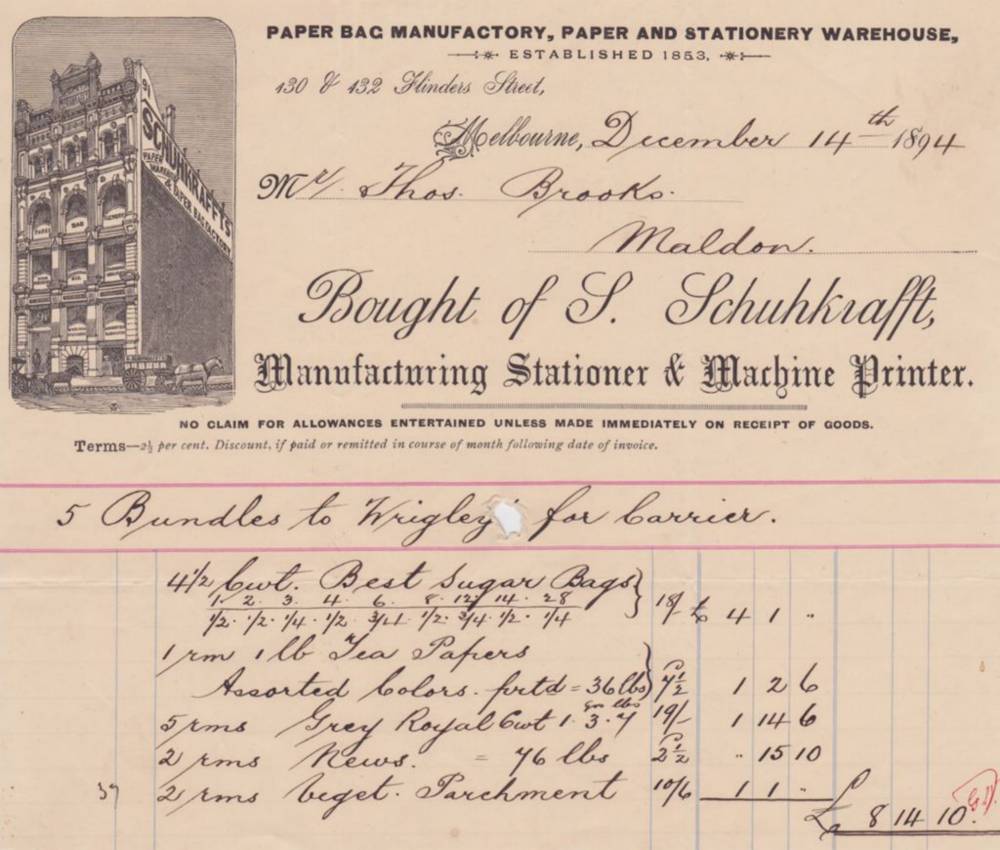 PAPER BAG MANUFACTORY, PAPER AND STATIONERY WAREHOUSE,
ESTABLISHED 1853,
130 & 132 Flinders Street,
Melbourne, December 14th 1894
Mr/. Thos. Brooks.
Maldon.
SCHUHKRAFFTS
PAPER
& PAPER BAG FACTORY
Bought of S. Schuhkrafft,
Manufacturing Stationer & Machine Printer.
NO CLAIM FOR ALLOWANCES ENTERTAINED UNLESS MADE IMMEDIATELY ON RECEIPT OF GOODS.
Terms—2½ per cent. Discount, if paid or remitted in course of month following date of invoice.
5 Bundles to Wrigley for Carrier.
4½ Cwt. Best Sugar Bags } 18/ £ 4 1 "
1. 2. 3. 4. 6. 8. 12. 14. 28
½. ½. ¼. ½. ¾. ½. ¾. ½. ¼
1 rm 1 lb Tea Papers
Assorted Colors. prtd = 36 lbs } 7½ 1 2 6
5 rms Grey Royal Cwt 1. 3. 7 19/- 1 14 6
2 rms News. = 76 lbs 2½ " 15 10
2 rms Veget. Parchment 10/6 1 1 "
£ 8 14 10.